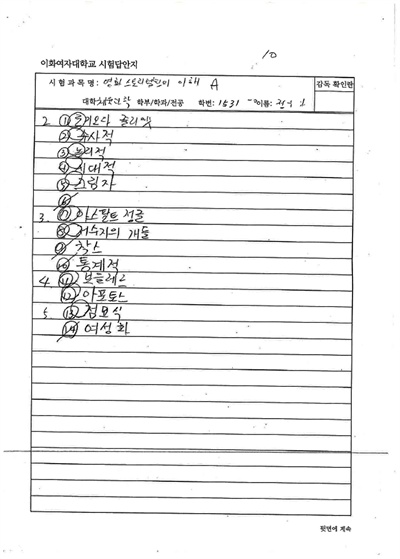 10
이화여자대학교 시험답안지
시험과목명: 영화 스토리텔링의 이해 A
감독 확인란
대학 학부/학과/전공 학번: 1531 이름:
2 ①
② 수사적
③ 논리적
④ 시대적
⑤ 그림자
⑥
3. ⑦ 아스팔트 정글
⑧ 저수지의 개들
⑨ 착스
⑩ 통계적
4 ⑪ 보들레르
⑫ 아포토스
5 ⑬ 점묘식
⑭ 여성화
뒷면에 계속